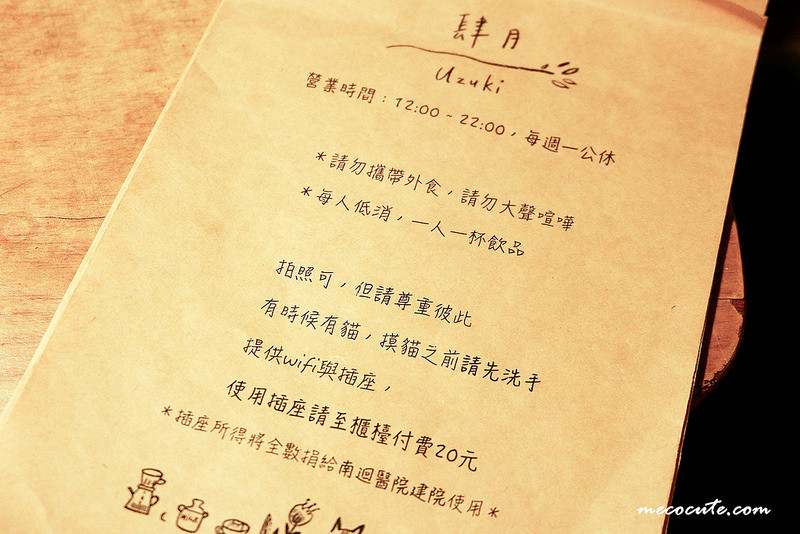 肆月
Uzuki
營業時間：12:00 - 22:00，每週一公休
＊請勿攜帶外食，請勿大聲喧嘩
＊每人低消，一人一杯飲品
拍照可，但請尊重彼此
有時候有貓，摸貓之前請先洗手
提供wifi與插座，
使用插座請至櫃檯付費20元
＊插座所得將全數捐給南迴醫院建院使用＊
mecocute.com